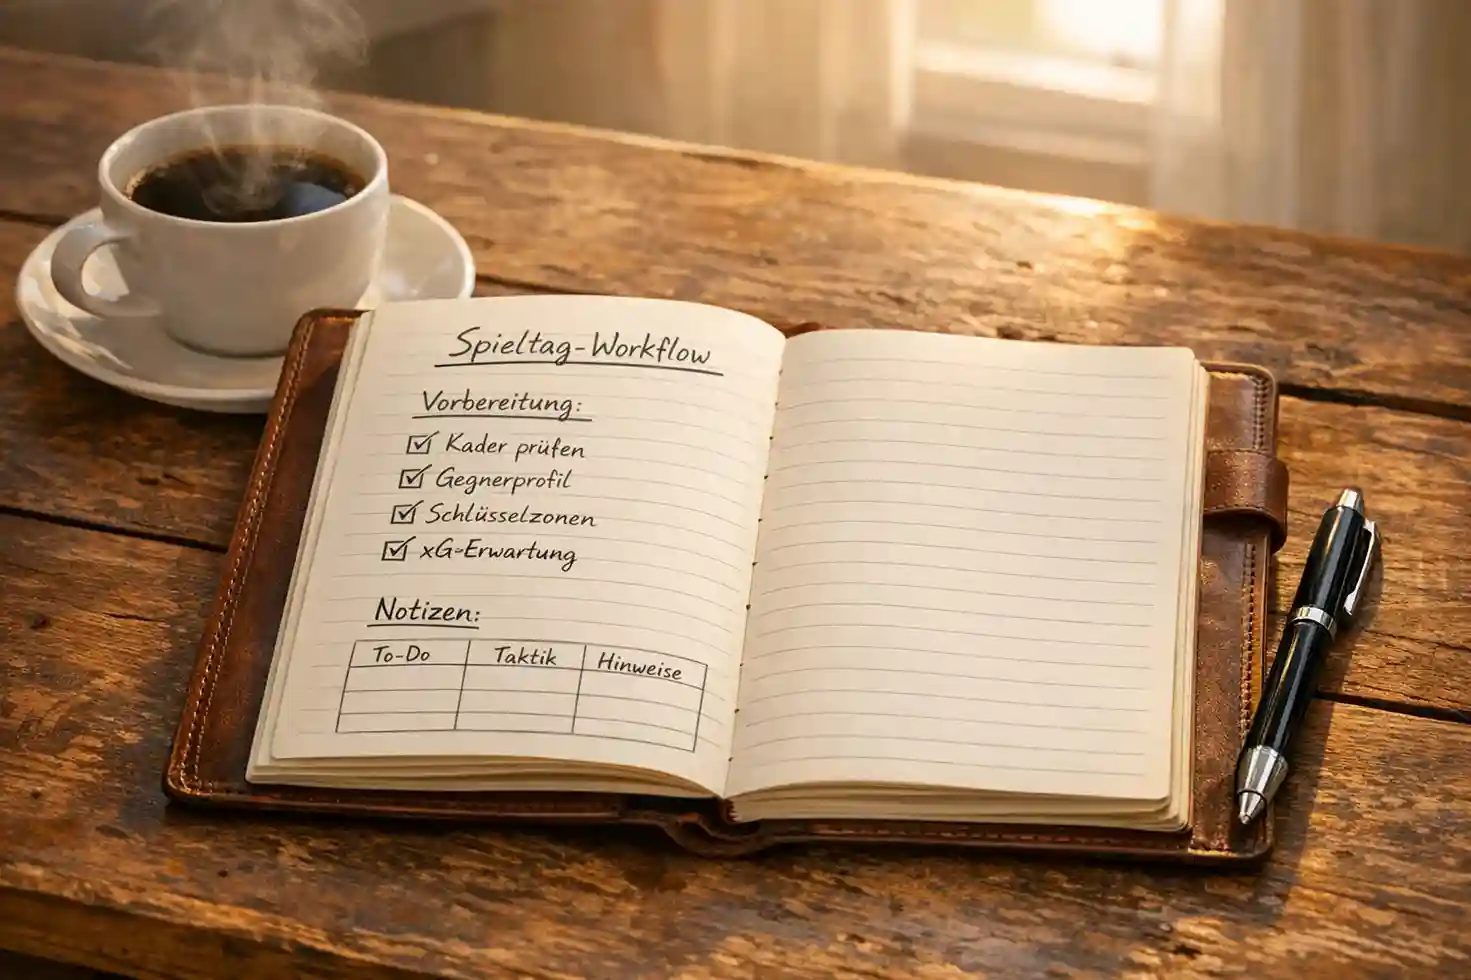 Spieltag-Workflow
Vorbereitung:
☑ Kader prüfen
☑ Gegnerprofil
☑ Schlüsselzonen
☑ xG-Erwartung
Notizen:
To-Do Taktik Hinweise